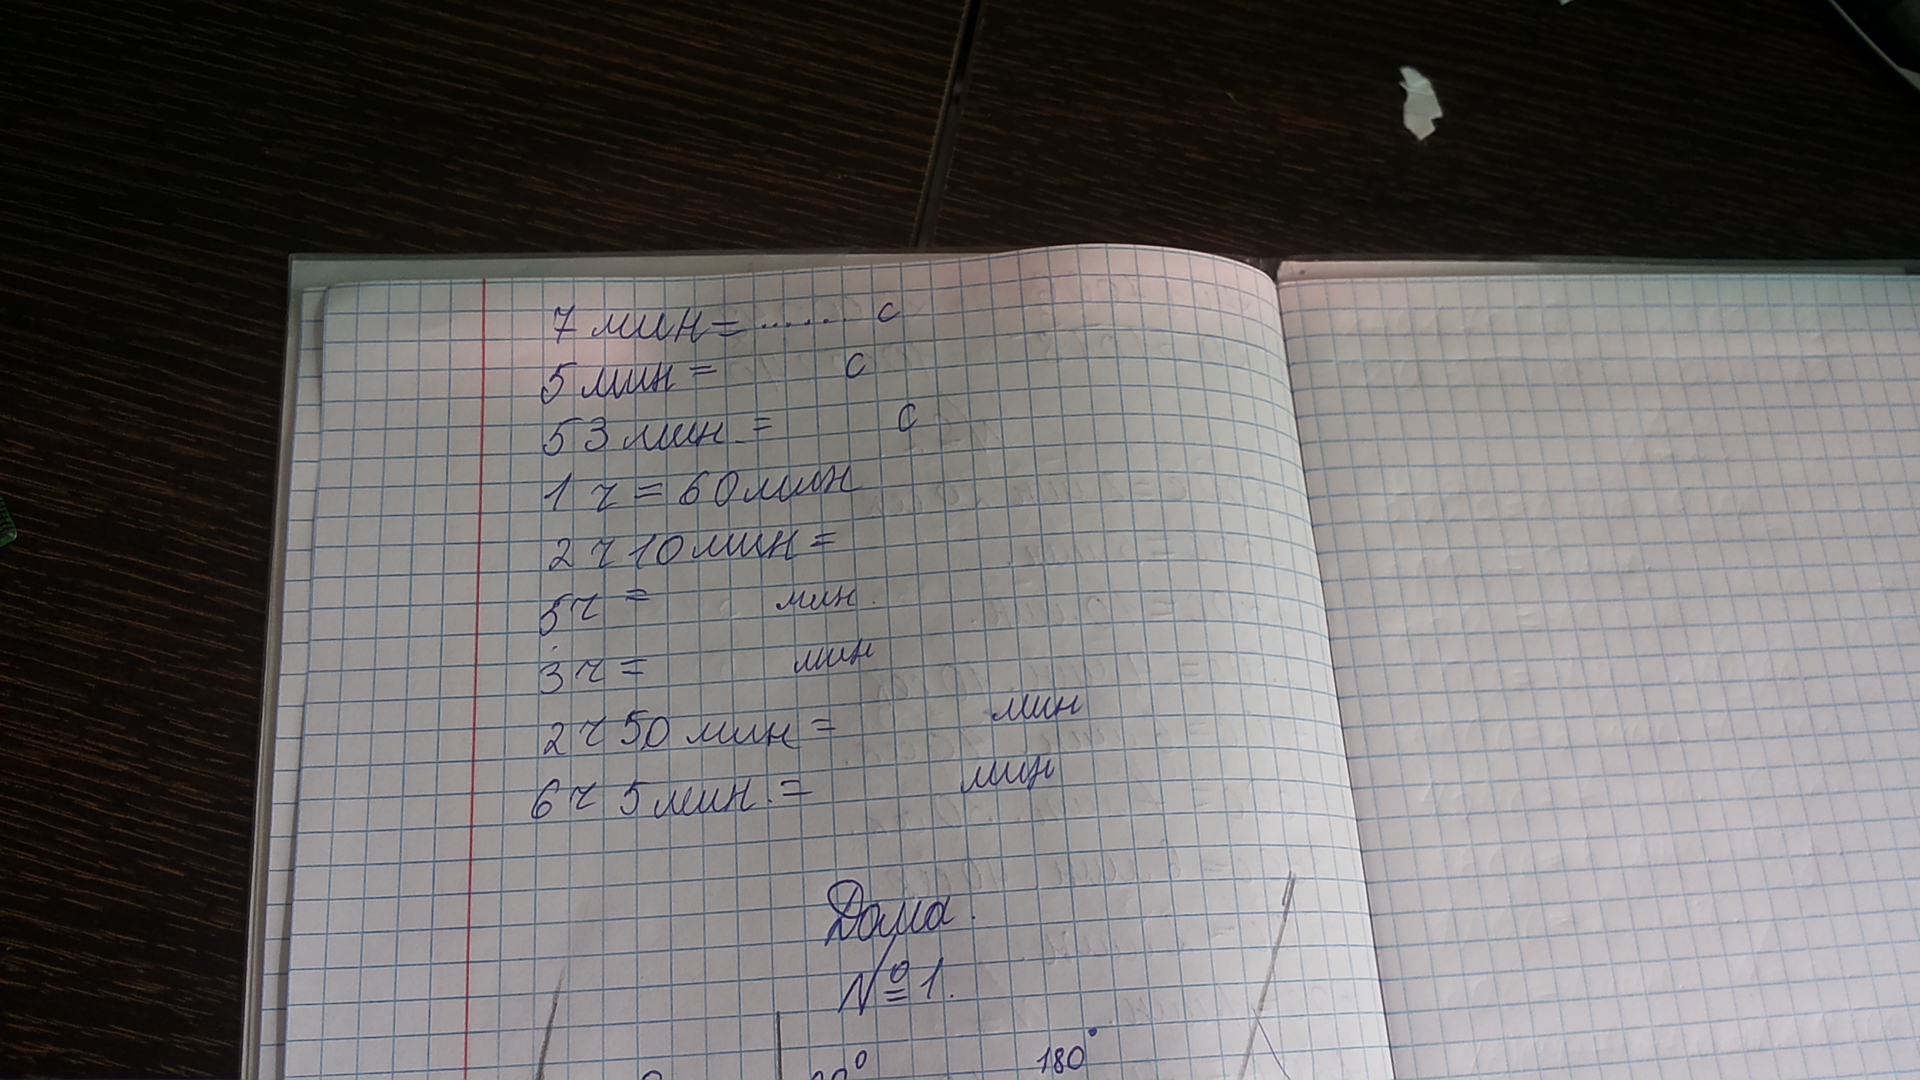 7 мин = ...... с
5 мин = с
53 мин = с
1 ч = 60 мин
2 ч 10 мин =
5 ч = мин.
3 ч = мин
2 ч 50 мин = мин
6 ч 5 мин. = мин
Дома.
№ 1.
180°